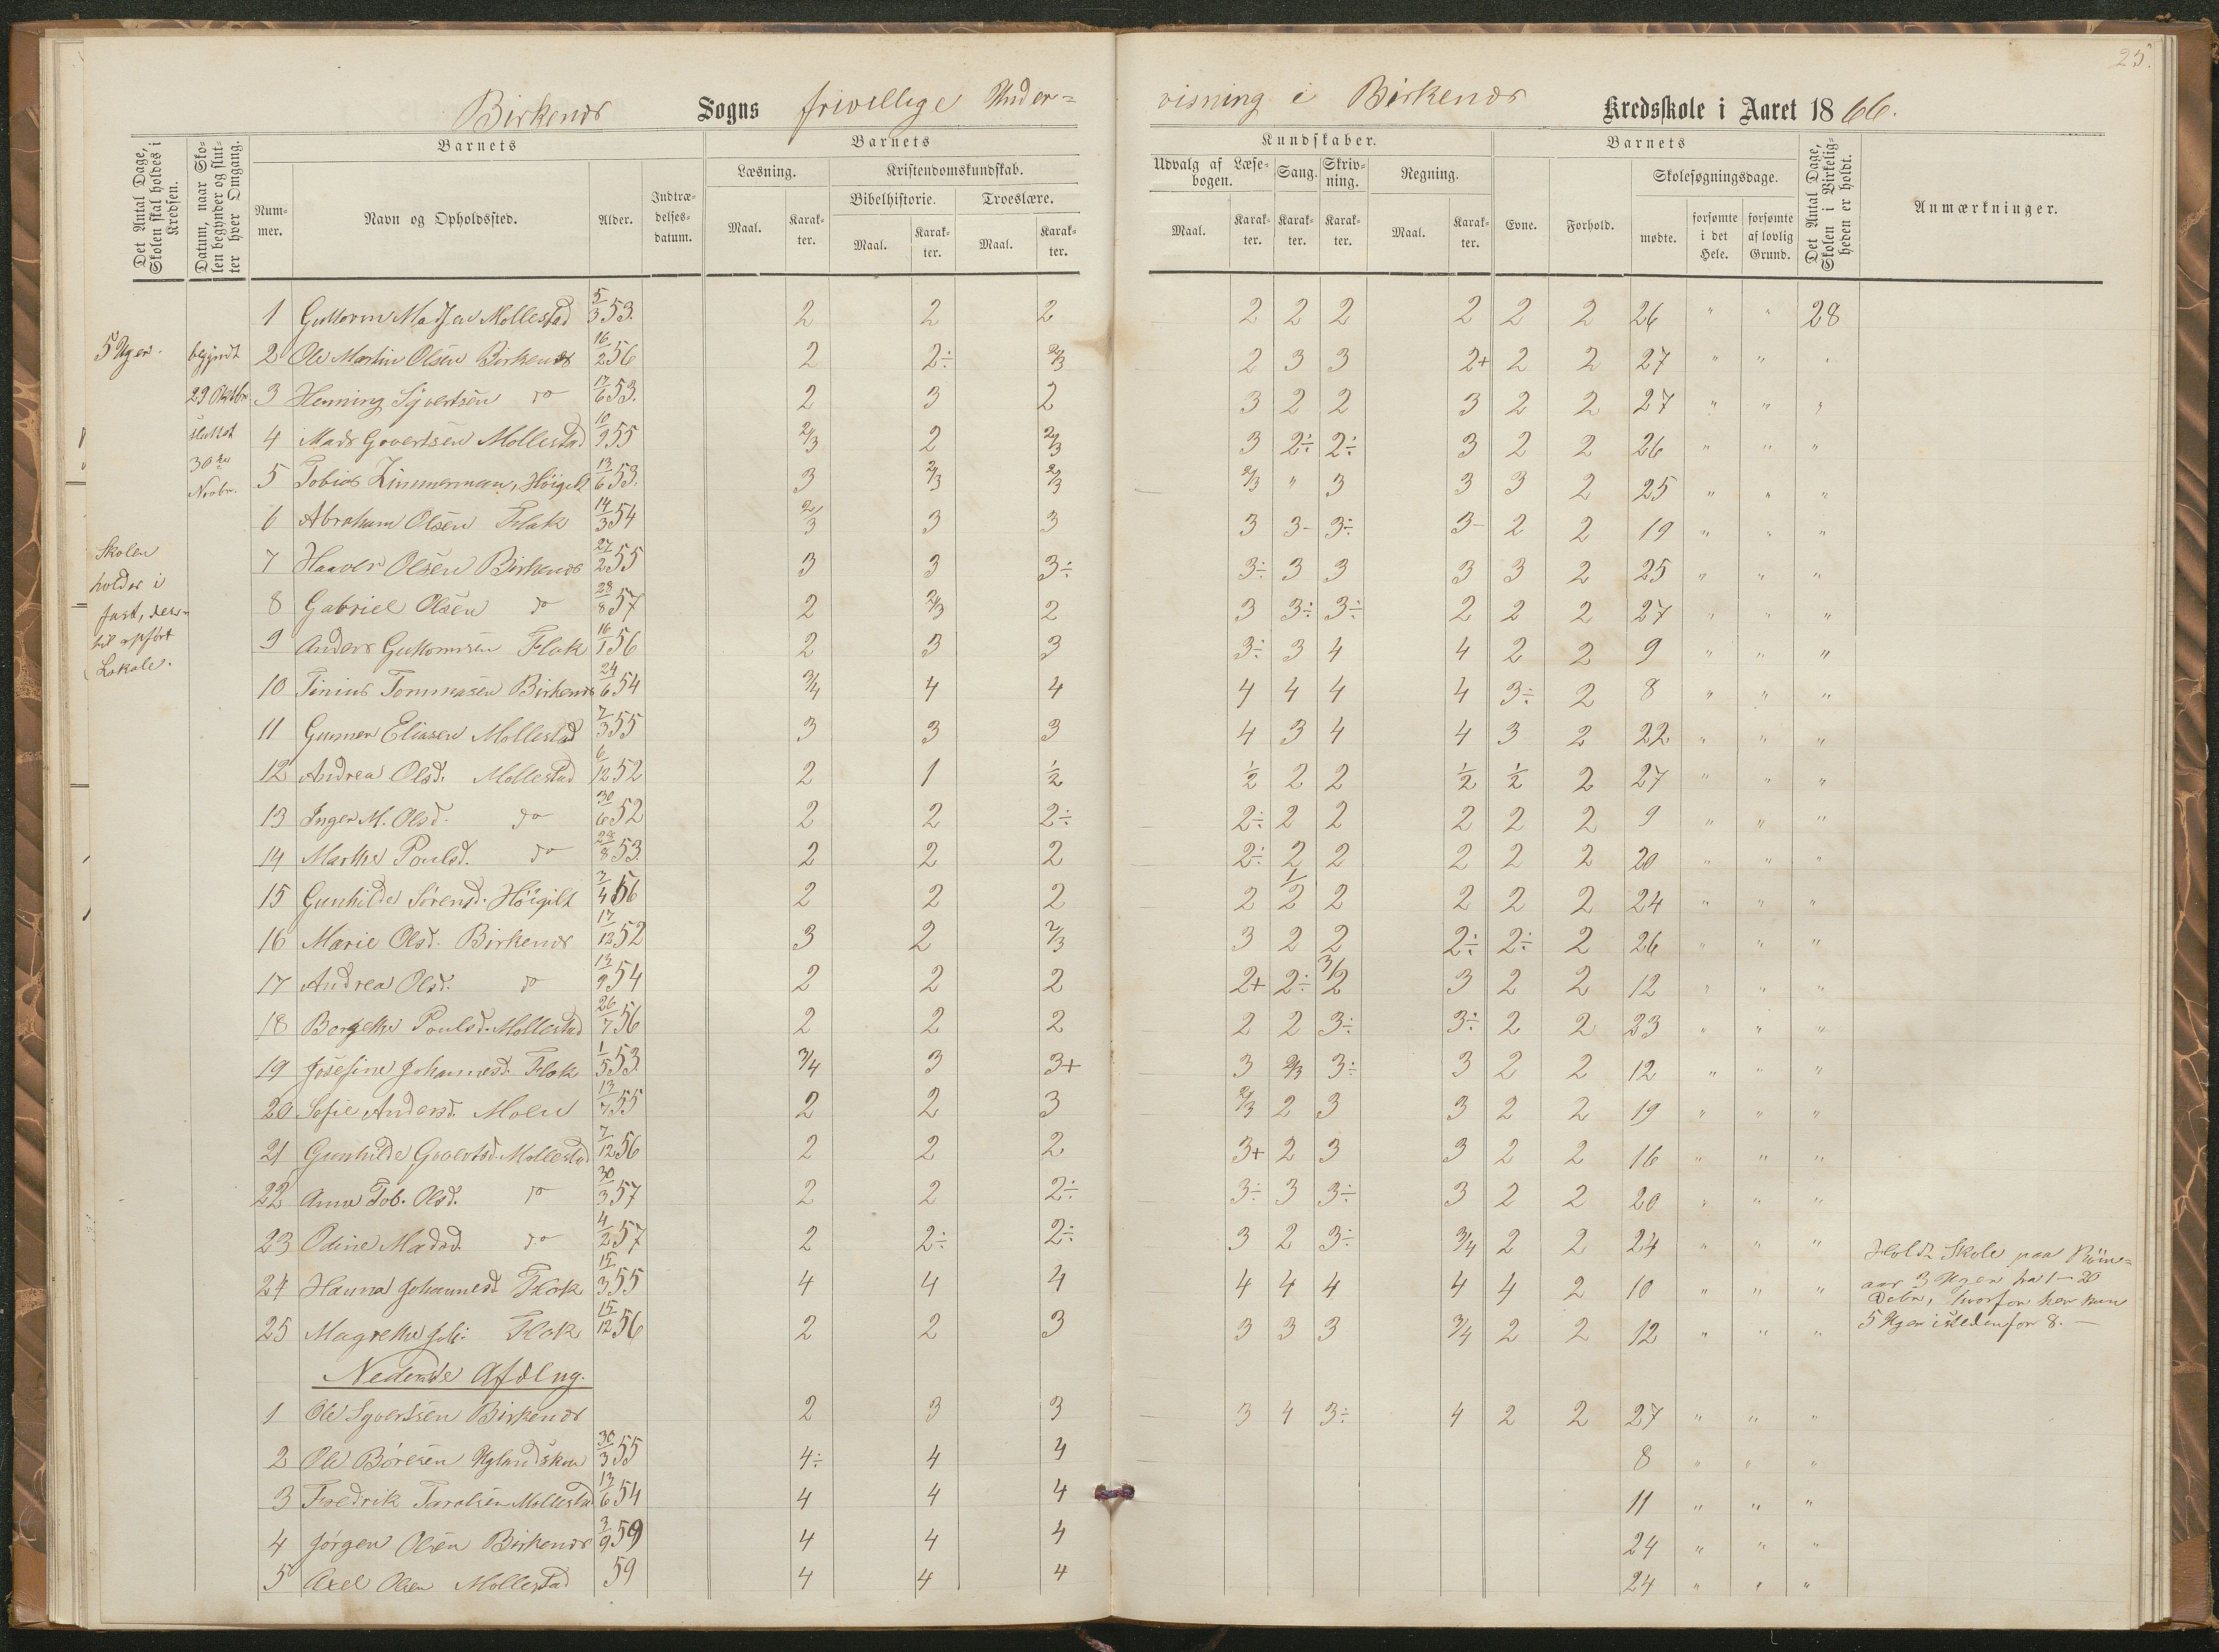 25.
Birkenæs Sogns frivillige Under=
visning i Birkenæs Kredsskole i Aaret 1866.
Det Antal Dage, Skolen skal holdes i Kredsen.
Datum, naar Skolen begynder og slutter hver Omgang.
Barnets
Nummer.
Navn og Opholdssted.
Alder.
Indtrædelsesdatum.
Barnets
Læsning.
Maal.
Karakter.
Kristendomskundskab.
Bibelhistorie.
Maal.
Karakter.
Troeslære.
Maal.
Karakter.
Kundskaber.
Udvalg af Læsebogen.
Maal.
Karakter.
Sang.
Karakter.
Skrivning.
Karakter.
Regning.
Maal.
Karakter.
Barnets
Evne.
Forhold.
Skolesøgningsdage.
mødte.
forsømte i det Hele.
forsømte af lovlig Grund.
Det Antal Dage, Skolen i Virkeligheden er holdt.
Anmærkninger.
5 Uger.
begyndt
29 Oktbr
sluttet
30te
Novbr.
Skolen
holdes i
fast, der=
til opført
Lokale.
1 Guttorm Madsen Mollestad 5/3 53. 2 2 2 2 2 2 2 2 2 26 " " 28
2 Ole Martin Olsen Birkenæs 16/2 56 2 2÷ 2/3 2 3 3 2+ 2 2 27 " " "
3 Henning Syvertsen do 17/6 53. 2 3 2 3 2 2 3 2 2 27 " " "
4 Mads Govertsen Mollestad 10/9 55 2/3 2 2/3 3 2÷ 2÷ 3 2 2 26 " " "
5 Tobias Zimmerman, Höigilt 13/6 53. 3 2/3 2/3 2/3 " 3 3 3 2 25 " " "
6 Abraham Olsen Flak 14/3 54 2/3 3 3 3 3- 3÷ 3- 2 2 19 " " "
7 Haaver Olsen Birkenæs 27/2 55 3 3 3÷ 3÷ 3 3 3 3 2 25 " " "
8 Gabriel Olsen do 28/8 57 2 2/3 2 3 3÷ 3÷ 2 2 2 27 " " "
9 Anders Guttormsen Flak 16/1 56 2 3 3 3÷ 3 4 4 2 2 9 " " "
10 Tinius Tommasen Birkenæs 24/6 54 3/4 4 4 4 4 4 4 3÷ 2 8 " " "
11 Gunner Eliasen Mollestad 7/3 55 3 3 3 4 3 4 4 3 2 22 " " "
12 Andrea Olsd. Mollestad 6/12 52 2 1 1/2 1/2 2 2 1/2 1/2 2 27 " " "
13 Inger M. Olsd. do 30/6 52 2 2 2÷ 2÷ 2 2 2 2 2 9 " " "
14 Marthe Poulsd. do 28/8 53. 2 2 2 2÷ 2 2 2 2 2 20 " " "
15 Gunhilde Sørensd. Höigilt 7/4 56 2 2 2 2 1/2 2 2 2 2 24 " " "
16 Marie Olsd. Birkenæs 17/12 52 3 2 2/3 3 2 2 2÷ 2÷ 2 26 " " "
17 Andrea Olsd. do 13/9 54 2 2 2 2+ 2÷ 3/2 3 2 2 12 " " "
18 Bergethe Poulsd. Mollestad 26/7 56 2 2 2 2 2 3÷ 3÷ 2 2 23 " " "
19 Josefine Johannesd. Flak 1/5 53. 3/4 3 3+ 3 2/3 3÷ 3 2 2 12 " " "
20 Sofie Andersd. Moen 13/7 55 2 2 3 2/3 2 3 3 2 2 19 " " "
21 Gunhilde Govertsd. Mollestad 7/12 56 2 2 2 3+ 2 3 3 2 2 16 " " "
22 Anne Tob. Olsd. do 30/3 57 2 2 2÷ 3÷ 3 3÷ 3 2 2 20 " " "
23 Odine Madsd. do 4/2 57 2 2÷ 2÷ 3 2 3÷ 3/4 2 2 24 " " "
24 Hanna Johannesd. Flak 15/3 55 4 4 4 4 4 4 4 4 2 10 " " "
25 Magrethe Joh. Flak 15/12 56 2 2 3 3 3 3 3/4 2 2 12 " " "
Holdt Skole paa
aar 3 Uger fra 1-20
Debr, hvorfor her kun
5 Uger istedenfor 8. —
Nederste Afdlng.
1 Ole Syvertsen Birkenæs 2 3 3 3 4 3÷ 4 2 2 27 " " "
2 Ole Böresen Uglandskou 30/3 55 4÷ 4 4 8 " " "
3 Fredrik Taralsen Mollestad 13/6 54 4 4 4 11 " " "
4 Jörgen Olsen Birkenæs 3/9 59 4 4 4 24 " " "
5 Axel Olsen Mollestad 59 4 4 4 24 " " "